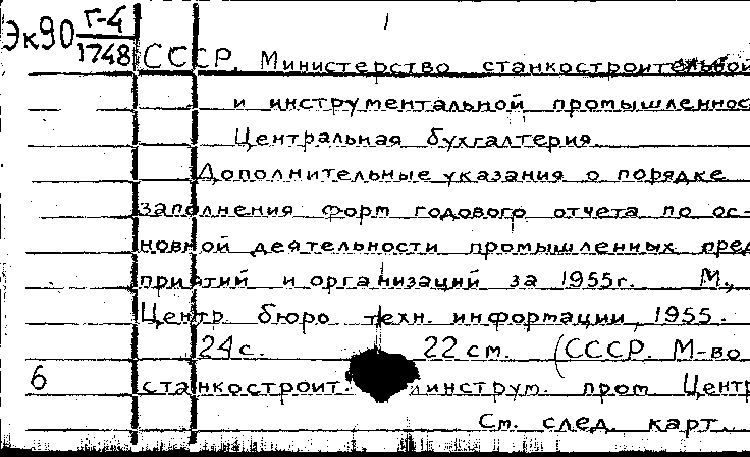 Эк90 Г-4/1748
СССР. Министерство станкостроительной
и инструментальной промышленнос
Центральная бухгалтерия
Дополнительные указания о порядке
заполнения форм годового отчета по ос-
новной деятельности промышленных пред
приятий и организаций за 1955г. М.,
Центр. бюро техн. информации, 1955.
24 с. 22 см. (СССР. М-во
6 станкостроит. инструм. пром Центр
См. след. карт.